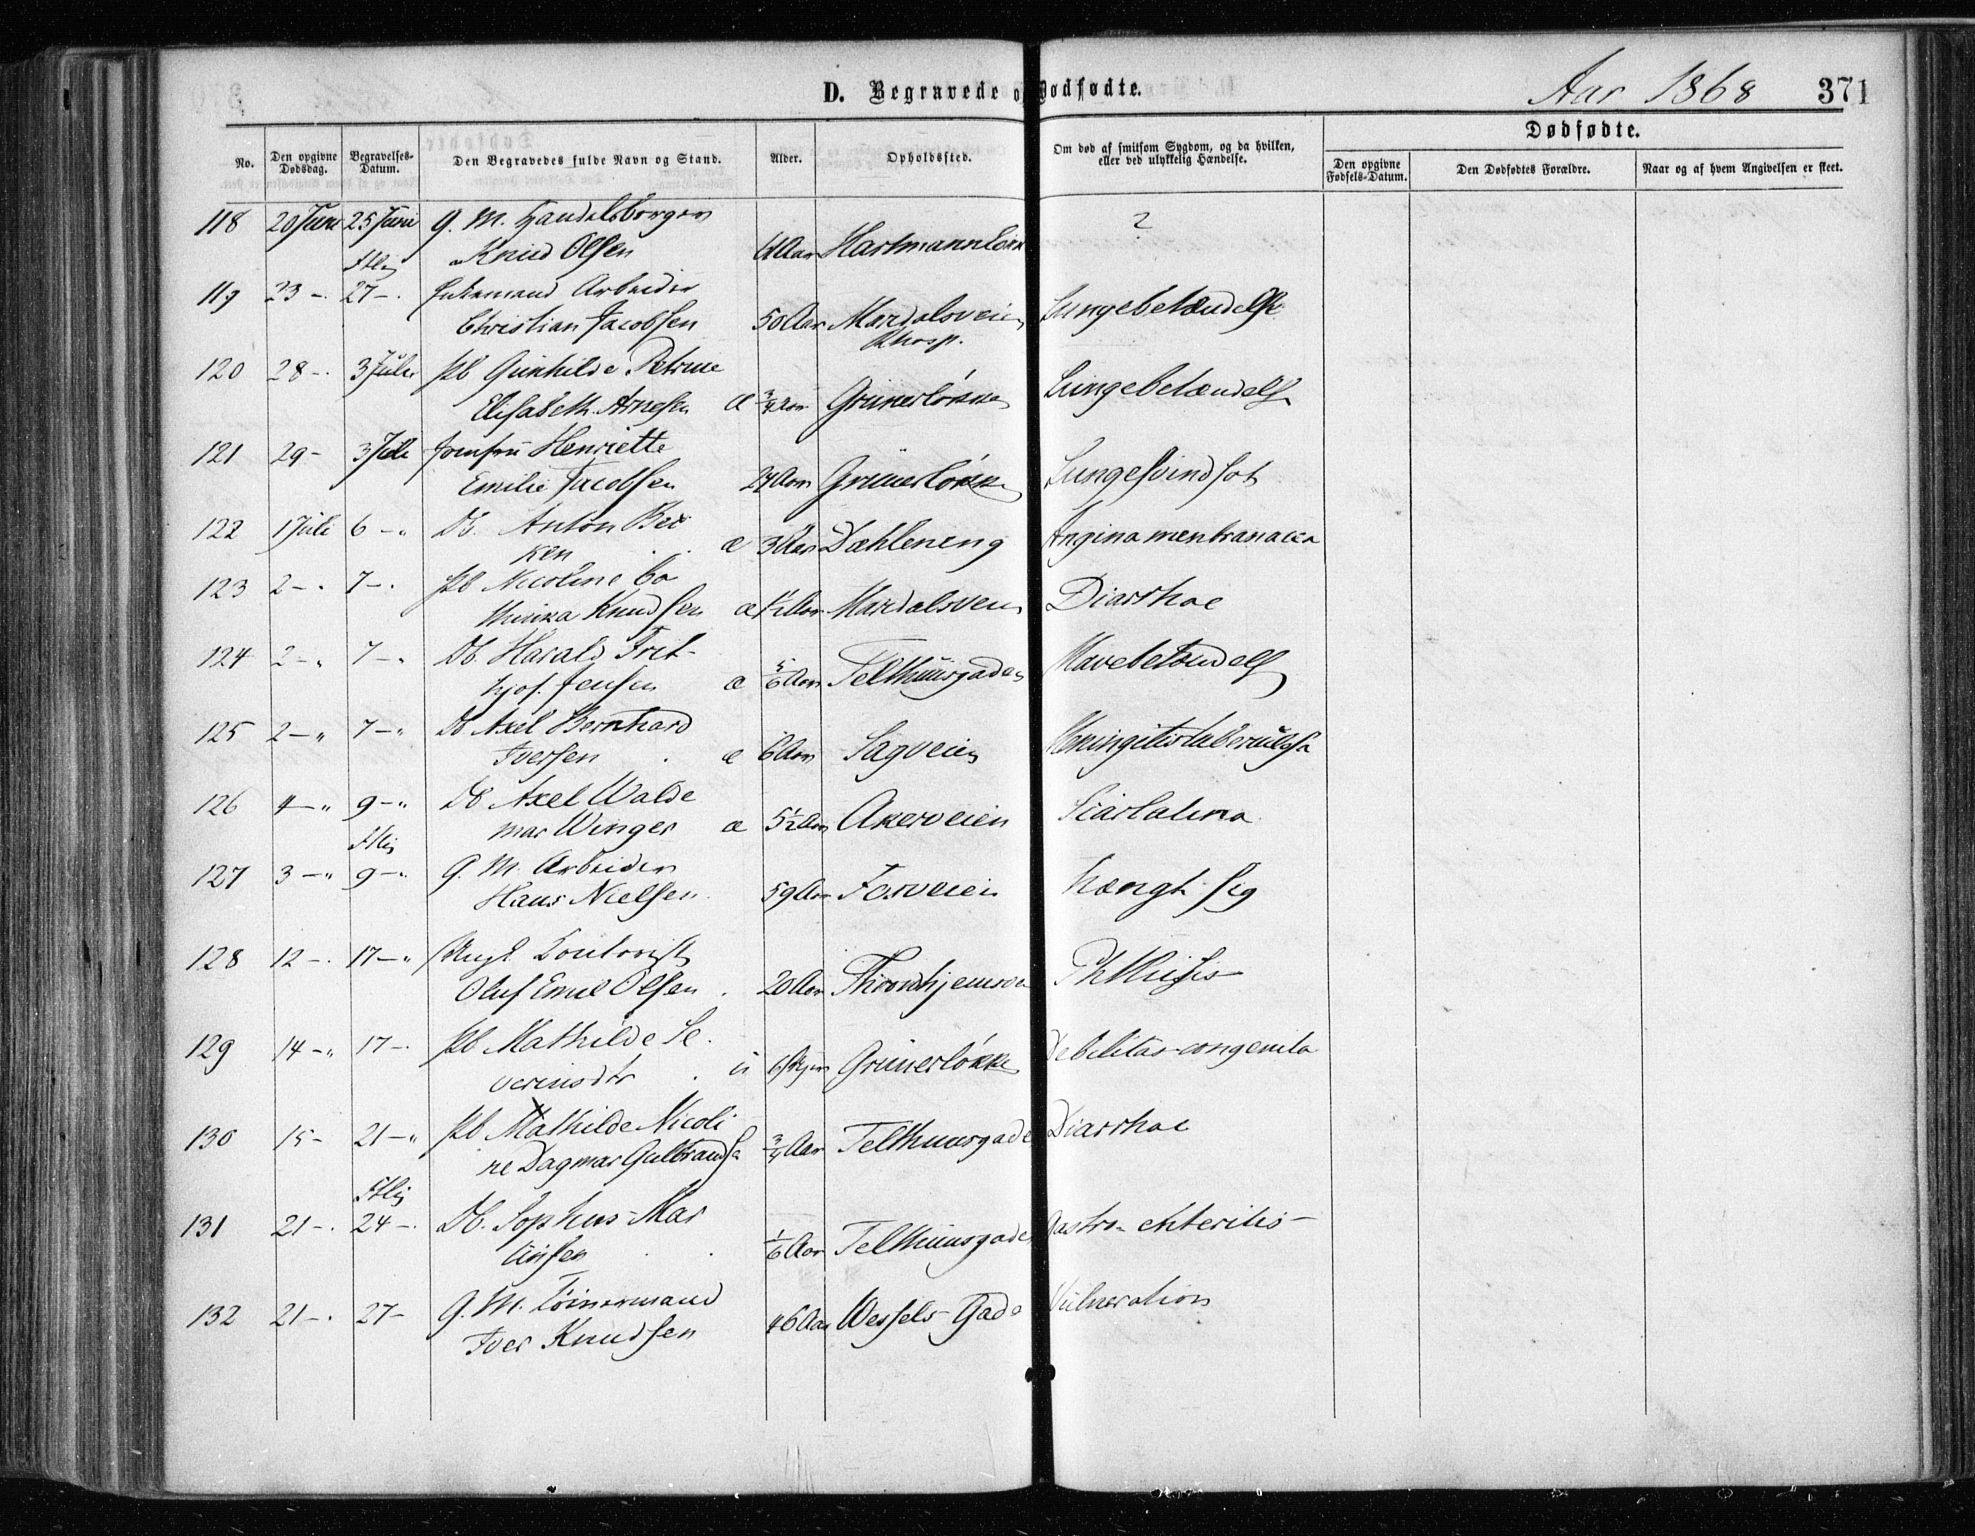 D. Begravede og Dødfødte.
Aar 1868
371
No.
Den opgivne Dødsdag.
Begravelses-Datum.
Den Begravedes fulde Navn og Stand.
Alder.
Opholdssted.
Om død af smitsom Sygdom, og da hvilken, eller ved ulykkelig Hændelse.
Dødfødte.
Den opgivne Fødsels-Datum.
Den Dødfødtes Forældre.
Naar og af hvem Angivelsen er skeet.
118 20 Juni 25 Juni G. M. Handelsborger
Knud Olsen Aar ?
119 23 -. 27 -. Enkemand Arbeider
Christian Jacobsen 50 Aar Maridalsveien Lungebetændelse
Rhosp.
120 28 -. 3 Juli Pb Gunhilde Petrine
Elisabeth Arnesen æ 3/4 Aar Grünerløkken Lungebetændelse
121 29 - 3 Juli Jomfru Henriette
Emilie Jacobsen 24 Aar Grünerløkken Lungesvindsot
122 1 Juli 6 -" Db. Anton Bec
ken æ 3 Aar Dæhleneng Angina membranacea
123 2 -. 7 -. Pb Nicoline Ca
thinka Knudsen æ 1 1/2 Aar Maridalsveien Diarrhoe
124 2 -" 7 -" Db. Harald Frit-
hjof. Jensen æ 5/6 Aar Telthuusgaden Mavebetændelse
125 2 -" 7 -" Db Axel Bernhard
Iversen æ 6 Aar Sagveien Meningitis tuberculosa
126 4 -" 9 -" Db Axel Walde
mar Winger æ 5 1/2 Aar Akerveien Scarlatina
127 3 -" 9 -" G. M. Arbeider
Hans Nielsen 59 Aar Fosveien hængt sig
128 12 -. 17 -" Ungk Contorist
Oluf Emil Olsen 20 Aar Throndhjemsvei Phthisis
129 14 -" 17 -. Pb Mathilde Se
verinsdtr u Grünerløkken Debilitas congenita
130 15 - 21 -" Pb Mathilde Nicoli
ne Dagmar Gulbrands 3/4 Aar Telthuusgade Diarrhoe
131 21 -. 24 -. Db. Sophus Mar
tinsen 1/6 Aar Telthuusgade Gastro-enteritis
132 21 -. 27 - G. M. Tøimermand
Iver Knudsen 46 Aar Wessels Gade Vulneration